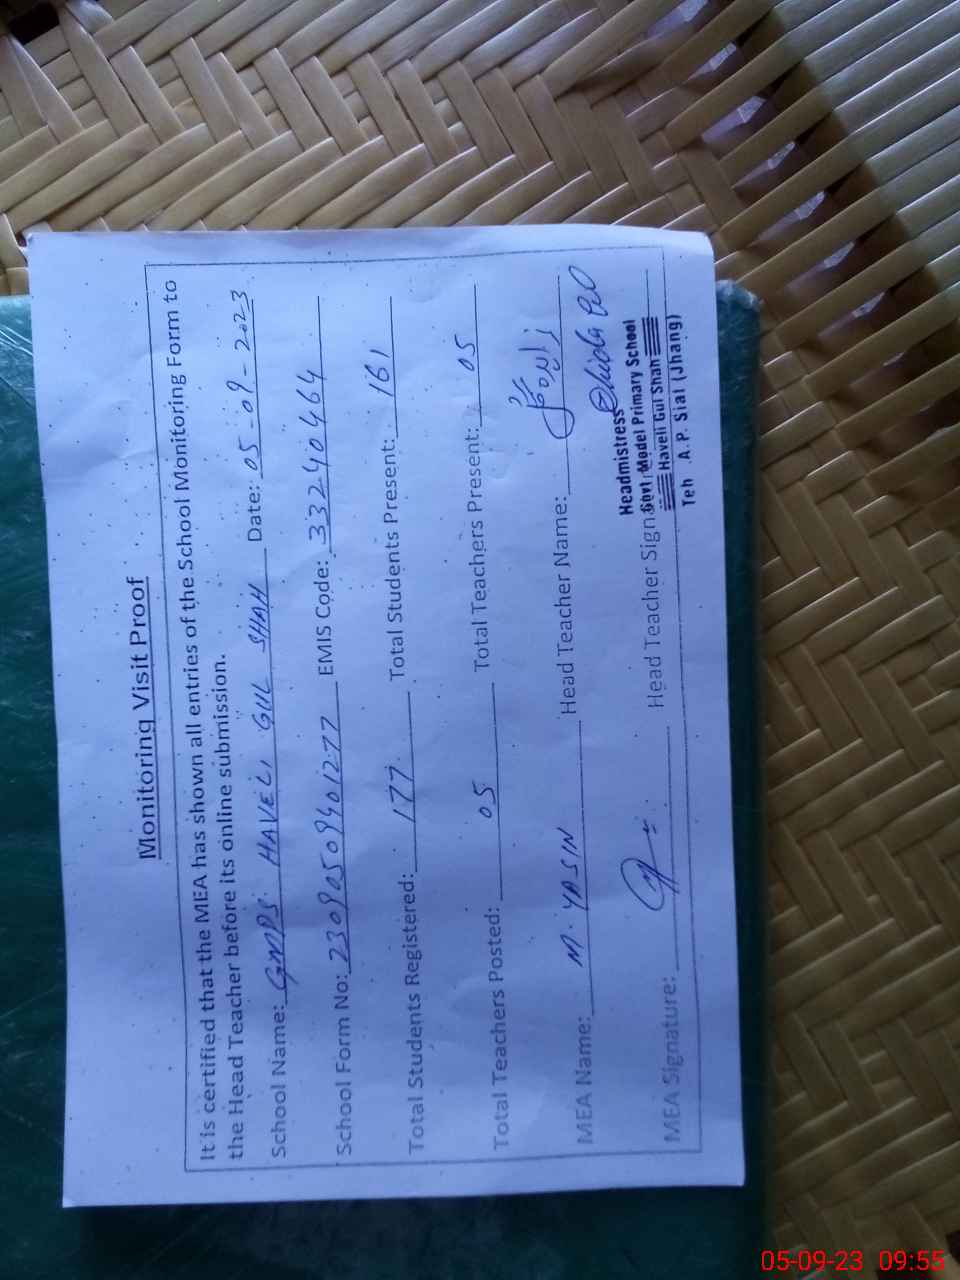 Monitoring Visit Proof
It is certified that the MEA has shown all entries of the School Monitoring Form to
the Head Teacher before its online submission.
School Name: GMPS HAVELI GUL SHAH Date: 05-09-2023
School Form No: 23090509401277 EMIS Code: 33240464
Total Students Registered: 177 Total Students Present: 161
Total Teachers Posted: 05 Total Teachers Present: 05
MEA Name: M. YASIN Head Teacher Name:
MEA Signature: Head Teacher Signa
Headmistress
Govt: Model Primary School
Haveli Gul Shah
Teh A.P. Sial (Jhang)
05-09-23 09:55